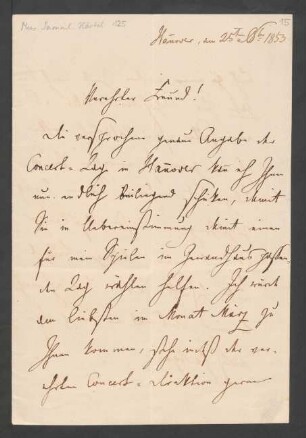 Hannover, am 25ten 1853
15
Verehrter Freund!
Die versprochene genaue Angabe der
Concert-Tage in Hannover kann ich Ihnen
nun endlich beiliegend schicken, damit
Sie in Uebereinstimmung damit einen
für mein Spielen im Gewandhaus passen-
den Tag wählen helfen. Ich würde
am liebsten im Monat März zu
Ihnen kommen, sehe indeß der ver-
ehrten Concert-Direktion gerne